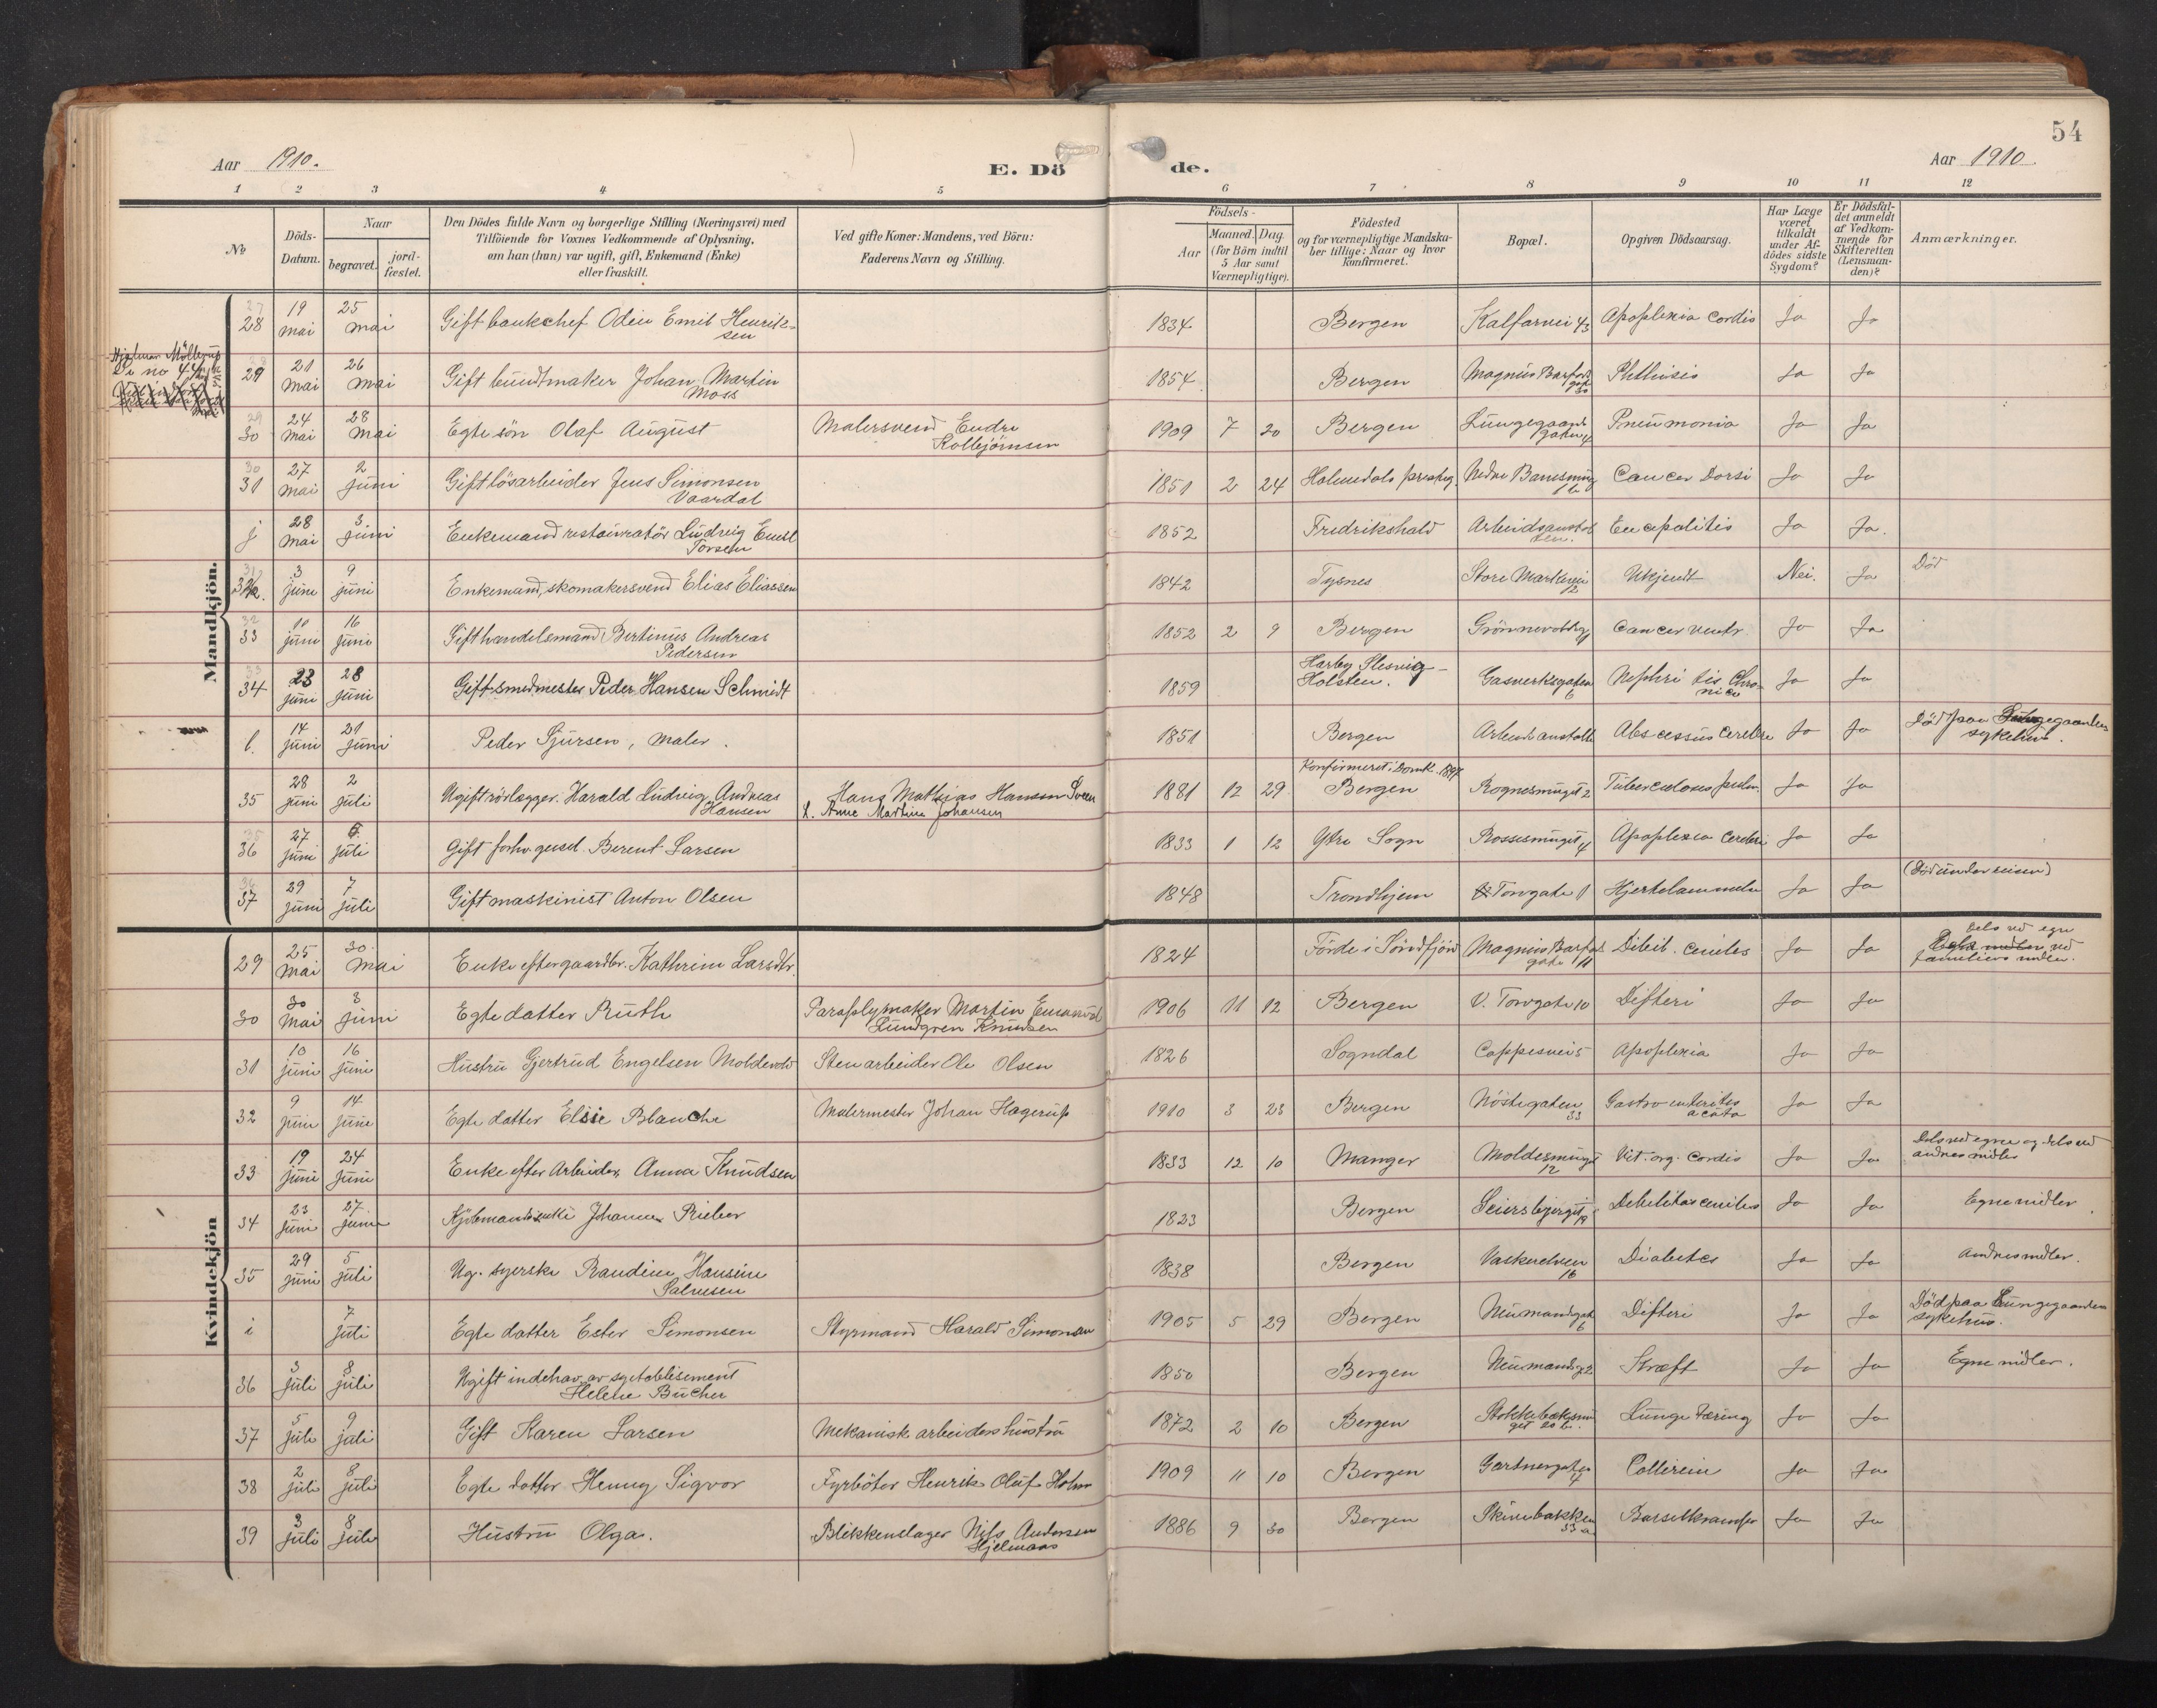 54
Aar 1910.
E. Döde.
Aar 1910.
1 2 3 4 5 6 7 8 9 10 11 12
No
Döds-Datum.
Naar
begravet.
jordfæstet.
Den Dödes fulde Navn og borgerlige Stilling (Næringsvei) med
Tilföiende for Voxnes Vedkommende af Oplysning,
om han (hun) var ugift, gift, Enkemand (Enke)
eller fraskilt.
Ved gifte Koner: Mandens, ved Börn:
Faderens Navn og Stilling.
Födsels-
Aar
Maaned. Dag.
(for Börn indtil
5 Aar samt
Værnepligtige).
Födested
og for værnepligtige Mandska-
ber tillige: Naar og hvor
konfirmeret.
Bopæl.
Opgiven Dödsaarsag.
Har Læge
været
tilkaldt
under Af-
dödes sidste
Sygdom?
Er Dödsfal-
det anmeldt
af Vedkom-
mende for
Skifteretten
(Lensman-
den)?
Anmærkninger.
Mandkjön.
Hjalmar Möllerup
28 19 mai 25 mai Gift bankchef Odin Emil Henriksen 1834 Bergen Kalfarvei 43 Apoplexia cordis Ja Ja
29 21 mai 26 mai Gift buntmaker Johan Martin Moss 1854 Bergen Magnus Barfods gate 30 Phthisis Ja Ja
30 24 mai 28 mai Egte sön Olaf August Malersvend Endre Kolbjörnsen 1909 7 20 Bergen Lungegaards gaten Pneumonia Ja Ja
31 27 mai 2 juni Gift lösarbeider Jens Simonsen Vaardal 1851 2 24 Holmedals prestegj. Nedre Cancer Dorsi Ja Ja
j 28 mai 3 juni Enkemand restauratör Ludvig Emil Torsen 1852 Fredrikshald Arbeidsanstalten. Ja Ja.
32 3 juni 9 juni Enkemand, skomakersvend Elias Eliassen 1842 Tysnes Store Markevei 12 Ukjendt Nei. Ja Död
33 10 juni 16 juni Gift handelsmand Bertinus Andreas Pedersen 1852 2 9 Bergen Cancer ventr Ja Ja
34 23 juni 28 juni Gift smedmester Peder Hansen Schmidt 1859 Harby Slesvig-Holsten. Gasverksgaten 6 Nephritis Chronica Ja Ja
l. 14 juni 21 juni Peder Sjursen, maler. 1851 Bergen Arbeidsanstalten Abscessus cerebri Ja Ja Död paa Lungegaardens sykehus.
35 28 juni 2 juli Ugift rörlægger Harald Ludvig Andreas Hansen Hans Mathias Hansen Sveen
Anne Martine Johansen 1881 12 29 Konfirmeret i Domk. 1897 Bergen Rognesmuget 2 Tuberculosis pulm. Ja Ja
36 27 juni juli Gift forhv. gensd. Berent Larsen 1833 1 12 Ytre Sogn Rossesmuget 4 Apoplexia cerebri Ja Ja
37 29 juni 7 juli Gift maskinist Anton Olsen 1848 Trondhjem Torvgate 1 Hjertelammelse Ja Ja (Död under reisen)
Kvindekjön
29 25 mai 30 mai Enke efter gaardbr. Kathrine Larsdtr. 1824 Förde i Söndfjord Magnus Barfods gate 11 Debil. cenilis Ja Ja Dels ved egne
ved familiens midler.
30 30 mai 3 juni Egte datter Ruth Paraplymaker Martin Emanuel Lundgren Knudsen 1906 11 12 Bergen V. Torvgate 10 Difteri Ja Ja
31 10 juni 16 juni Hustru Gjertrud Engelsen Moldevold Stenarbeider Ole Olsen 1826 Sogndal Cappesvei 5 Apoplexia Ja Ja
32 9 juni 14 juni Egte datter Elsie Blanche Malermester Johan Hagerup 1910 3 23 Bergen Nöstegaten 33 Gastroenteritis acuta Ja Ja
33 19 juni 24 juni Enke efter Arbeider, Anna Knudsen 1833 12 10 Manger Moldesmuget 12 Vit. org. cordis Ja Ja Dels ved egne og dels ved andres midler
34 23 juni 27 juni Kjöbmandsenke Johanne Rieber 1823 Bergen Seiersbjerget 19 Debilitas cenilis Ja Ja Egne midler
35 29 juni 5 juli Ug. syerske Randine Hansine Salvesen 1838 Bergen Vaskerelven 16 Diabetes Ja Ja Andres midler.
i 7 juli Egte datter Ester Simonsen Styrmand Harald Simonsen 1905 5 29 Bergen Neumansgate 6 Difteri Ja Ja Död paa Lungegaardens sykehus.
36 3 juli 8 juli Ugift indehav. av syetablisement Helene Bucher 1850 Bergen Neumansg 2 Kræft Ja Ja Egne midler.
37 5 juli 9 juli Gift Karen Larsen Mekanisk arbeiders hustru 1872 2 10 Bergen Stokkebæksmuget 20 b. Lungetæring Ja Ja
38 2 juli 8 juli Egte datter Henny Sigvor Fyrböter Henrik Oluf Holm 1909 11 10 Bergen Gartnergaten 4 Collerine Ja Ja
39 3 juli 8 juli Hustru Olga. Blikkenslager Nils Andersen Hjelmaas 1886 9 30 Bergen Skivebakken 33 a Barselkrampe Ja Ja